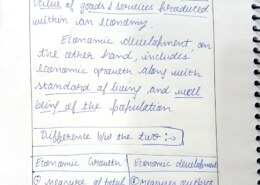 value of goods & services produced
within an economy.
Economic development, on
the other hand, includes
economic growth along with
standard of living and well
being of the population
Difference b/w the two :→
Economic Growth Economic development
① measure of total ① measures